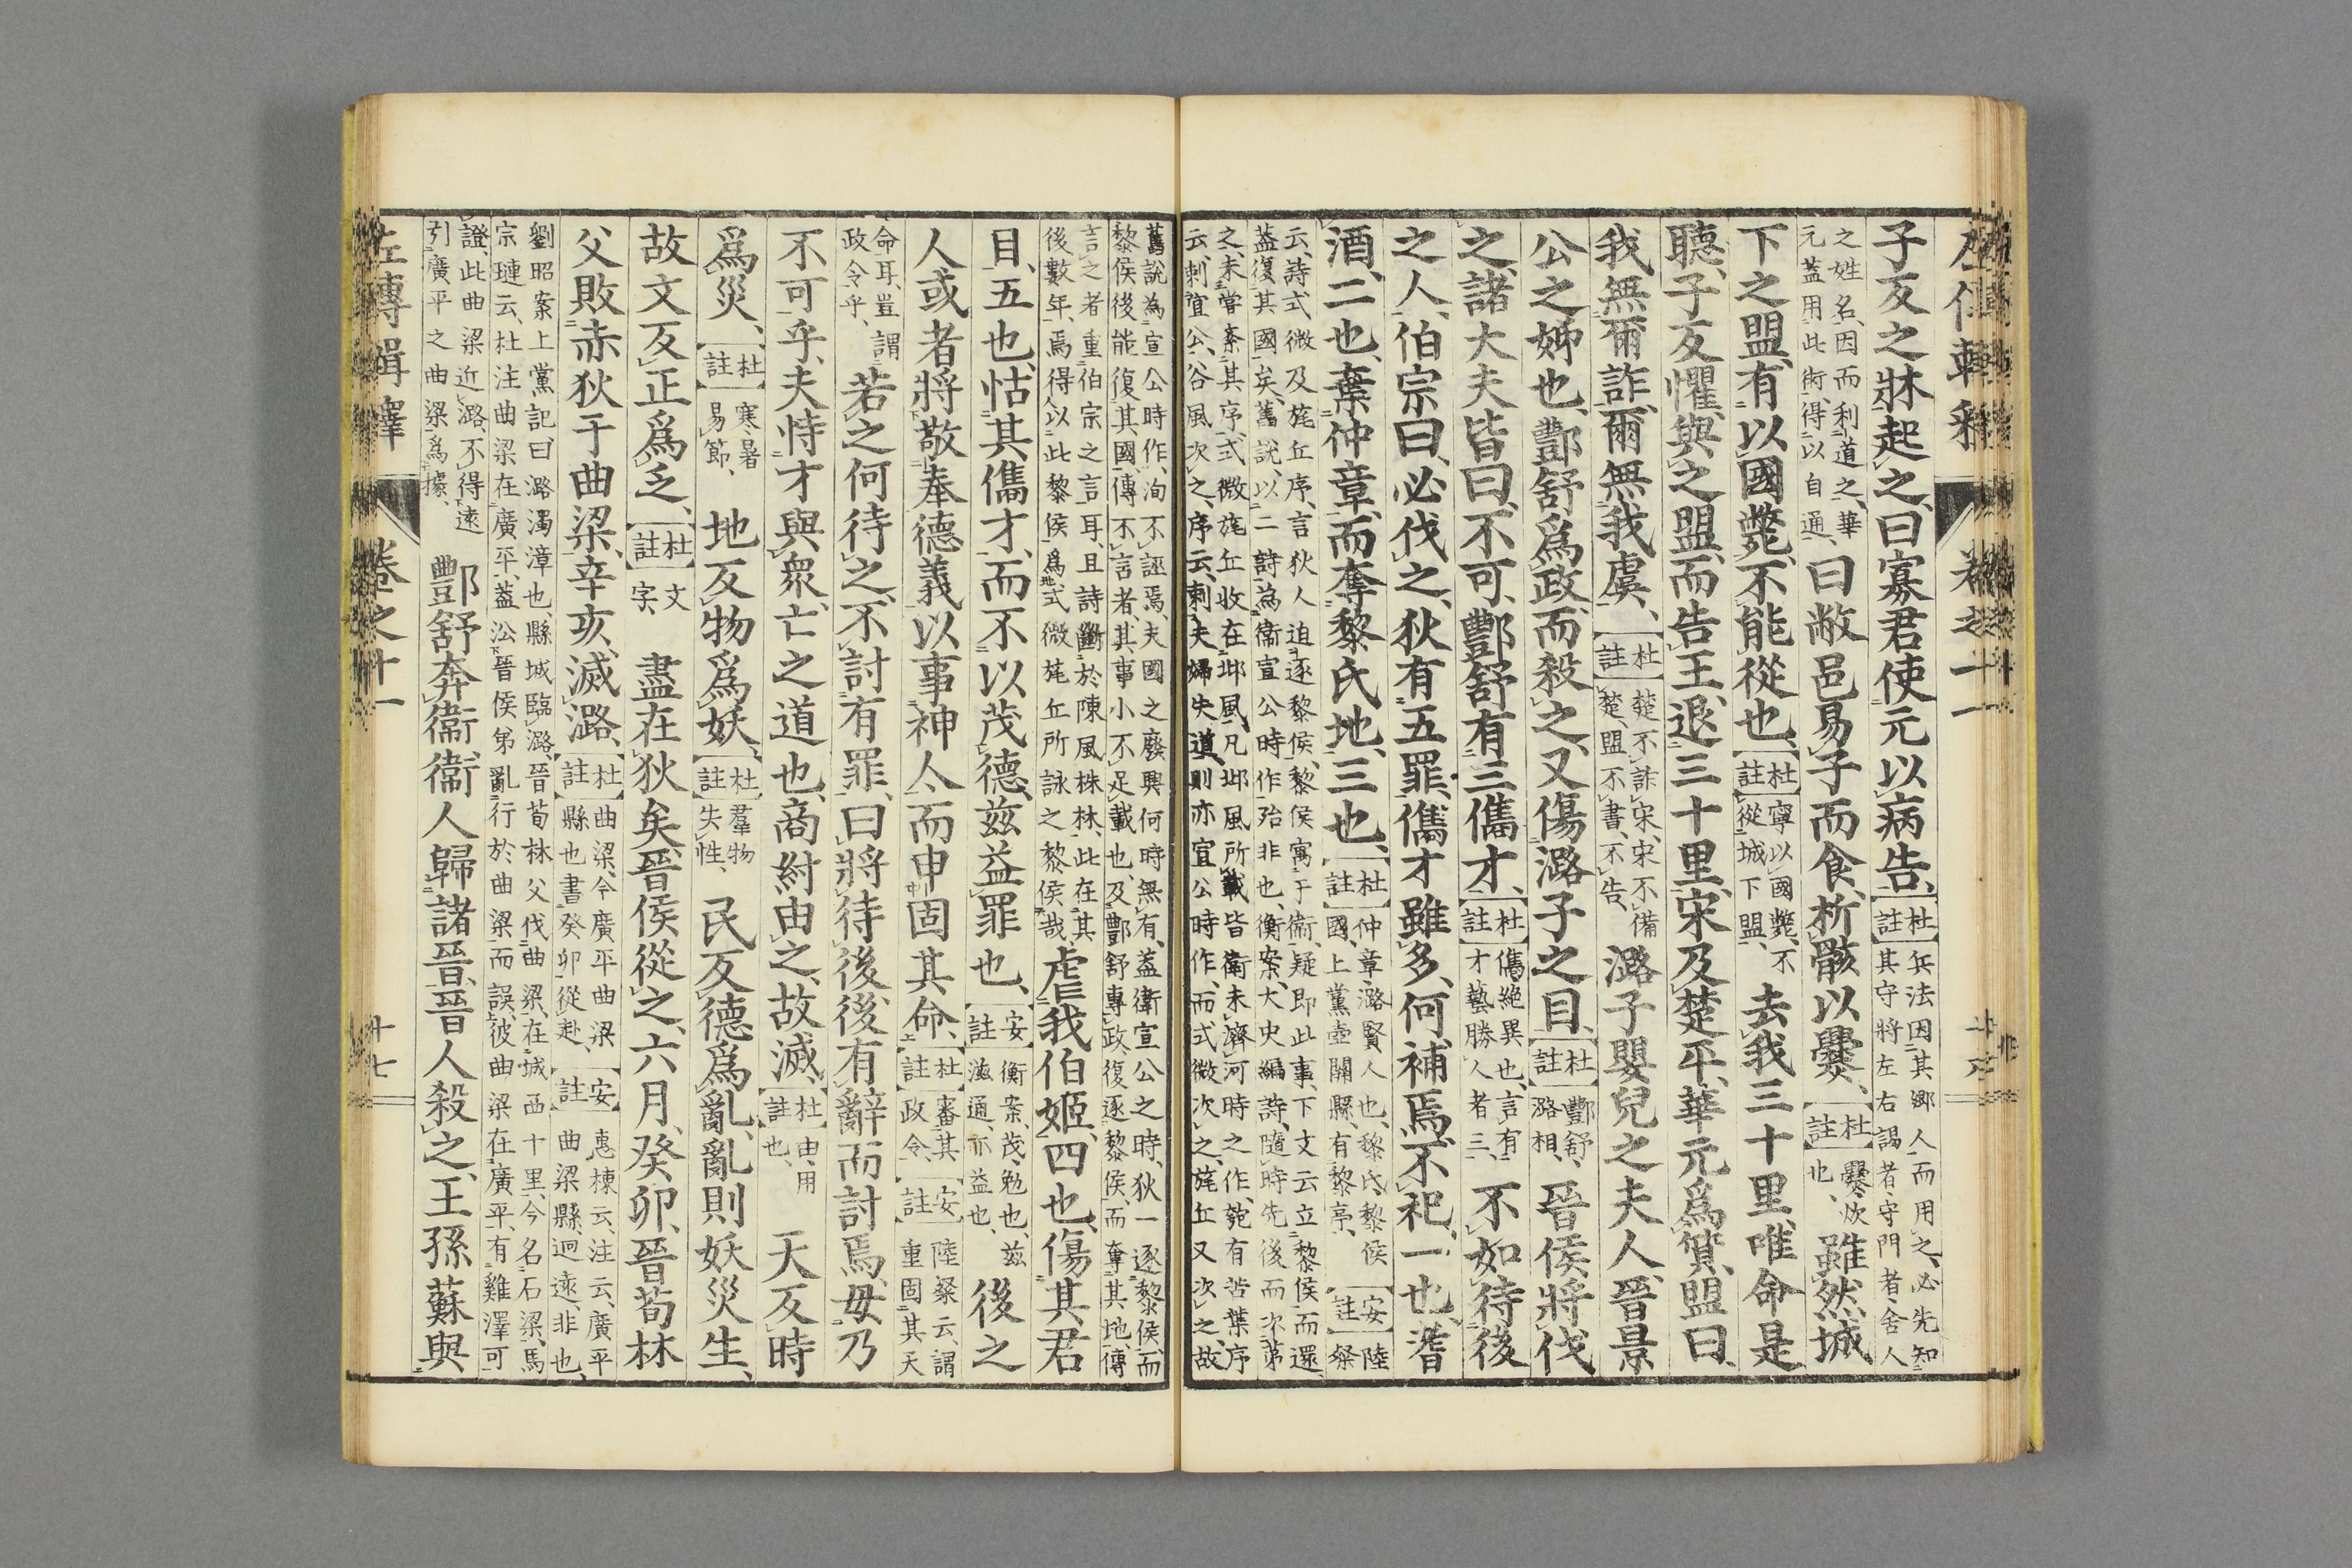 子反之牀起之曰寡君使元以病告【杜註】兵法因其鄉人而用之必先知其守將左右謁者守門者舍人
之姓名因而利道之華元蓋用此術得以自通曰敝邑易子而食析骸以爨【杜註】爨炊也雖然城
下之盟有以國斃不能從也【杜註】寧以國斃不從城下盟去我三十里唯命是
聽子反懼與之盟而告王退三十里宋及楚平華元爲質盟曰
我無爾詐爾無我虞【杜註】楚不詐宋宋不備楚盟不書不告潞子嬰兒之夫人晉景
公之姊也酆舒爲政而殺之又傷潞子之目【杜註】酆舒潞相晉侯將伐
之諸大夫皆曰不可酆舒有三儁才【杜註】儁絕異也言有才藝勝人者三不如待後
之人伯宗曰必伐之狄有五罪儁才雖多何補焉不祀一也耆
酒二也棄仲章而奪黎氏地三也【杜註】仲章潞賢人也黎氏黎侯國上黨壺關縣有黎亭【安註】陸粲
云詩式微及旄丘序言狄人迫逐黎侯黎侯寓于衞疑即此事下文云立黎侯而還蓋復其國矣舊說以二詩為衞宣公時作殆非也衡案大史編詩隨時先後而次第
之未嘗紊其序式微旄丘收在邶風凡邶風所載皆衞未濟河時之作匏有苦葉序云刺宣公谷風次之序云刺夫婦失道則亦宣公時作而式微次之旄丘又次之故
舊說為宣公時作洵不誣焉夫國之廢興何時無有蓋衞宣公之時狄一逐黎侯而黎侯後能復其國傳不言者其事小不足載也及酆舒專政復逐黎侯而奪其地傳
言之者重伯宗之言耳且詩斷於陳風株林此在其後數年焉得以此黎侯爲式微旄丘所詠之黎侯哉虐我伯姬四也傷其君
目五也怙其儁才而不以茂德茲益罪也【安註】衡案茂勉也茲滋通亦益也後之
人或者將敬奉德義以事神人而申固其命【杜註】審其政令【安註】陸粲云謂重固其天
命耳豈謂政令乎若之何待之不討有罪曰將待後後有辭而討焉毋乃
不可乎夫恃才與衆亡之道也商紂由之故滅【杜註】由用也天反時
爲災【杜註】寒暑易節地反物爲妖【杜註】羣物失性民反德爲亂亂則妖災生
故文反正爲乏【杜註】文字盡在狄矣晉侯從之六月癸卯晉荀林
父敗赤狄于曲梁辛亥滅潞【杜註】曲梁今廣平曲梁縣也書癸卯從赴【安註】惠棟云注云廣平曲梁縣迥遠非也
劉昭案上黨記曰潞濁漳也縣城臨潞晉荀林父伐曲梁在城西十里今名石梁馬宗璉云杜注曲梁在廣平蓋㳂晉侯弟亂行於曲梁而誤彼曲梁在廣平有雞澤可
證此曲梁近潞不得遠引廣平之曲梁爲據酆舒奔衞衞人歸諸晉晉人殺之王孫蘇與
左傳輯釋 卷之十一 廿七